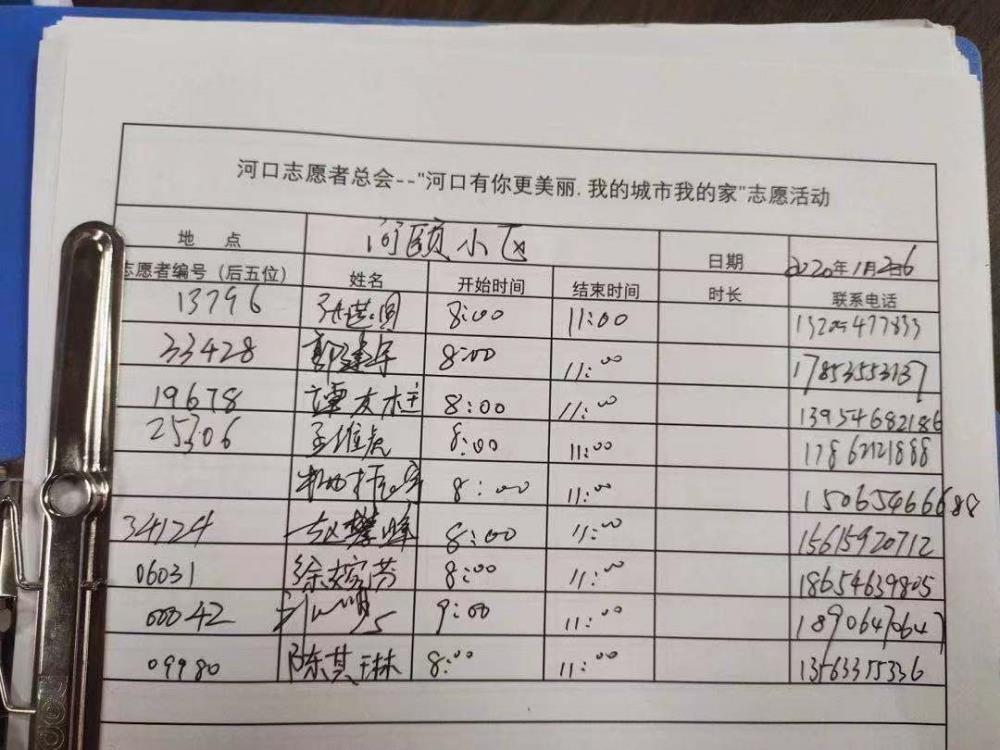 河口志愿者总会--"河口有你更美丽.我的城市我的家"志愿活动
地 点 河颐小区 日期 2020年1月26
志愿者编号（后五位） 姓名 开始时间 结束时间 时长 联系电话
13796 8:00 11:00 13205477833
33428 8:00 11:00 17853553137
19678 谭友柱 8:00 11:00 13954682186
25306 孟维虎 8:00 11:00 17862121888
8:00 11:00 15065466688
34124 赵攀峰 8:00 11:00 15615920712
06031 8:00 11:00 18654639805
00042 9:00 11:00 18906470647
09980 陈其琳 8:00 11:00 13563355336